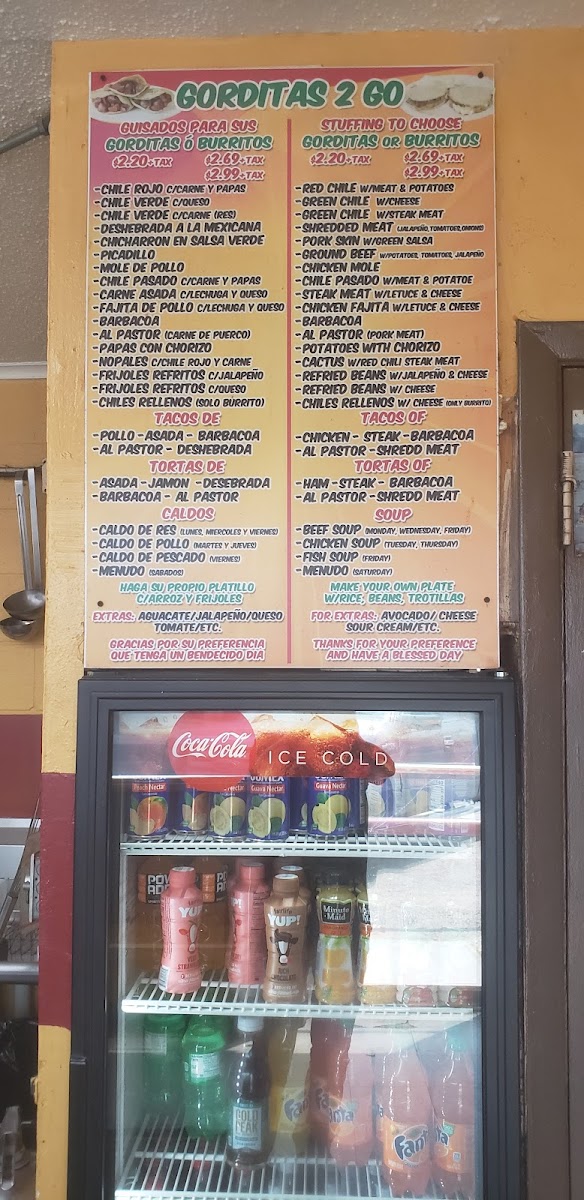 GORDITAS 2 GO
GUISADOS PARA SUS
GORDITAS ó BURRITOS
$2.20+TAX $2.69+TAX
$2.99+TAX
-CHILE ROJO C/CARNE Y PAPAS
-CHILE VERDE C/QUESO
-CHILE VERDE C/CARNE (RES)
-DESHEBRADA A LA MEXICANA
-CHICHARRON EN SALSA VERDE
-PICADILLO
-MOLE DE POLLO
-CHILE PASADO C/CARNE Y PAPAS
-CARNE ASADA C/LECHUGA Y QUESO
-FAJITA DE POLLO C/LECHUGA Y QUESO
-BARBACOA
-AL PASTOR (CARNE DE PUERCO)
-PAPAS CON CHORIZO
-NOPALES C/CHILE ROJO Y CARNE
-FRIJOLES REFRITOS C/JALAPEÑO
-FRIJOLES REFRITOS C/QUESO
-CHILES RELLENOS (SOLO BURRITO)
TACOS DE
-POLLO -ASADA - BARBACOA
-AL PASTOR - DESHEBRADA
TORTAS DE
-ASADA -JAMON -DESEBRADA
-BARBACOA - AL PASTOR
CALDOS
-CALDO DE RES (LUNES, MIERCOLES Y VIERNES)
-CALDO DE POLLO (MARTES Y JUEVES)
-CALDO DE PESCADO (VIERNES)
-MENUDO (SABADOS)
HAGA SU PROPIO PLATILLO
C/ARROZ Y FRIJOLES
EXTRAS: AGUACATE/JALAPEÑO/QUESO
TOMATE/ETC.
GRACIAS POR SU PREFERENCIA
QUE TENGA UN BENDECIDO DIA
STUFFING TO CHOOSE
GORDITAS OR BURRITOS
$2.20+TAX $2.69+TAX
$2.99+TAX
-RED CHILE W/MEAT & POTATOES
-GREEN CHILE W/CHEESE
-GREEN CHILE W/STEAK MEAT
-SHREDDED MEAT (JALAPEÑO,TOMATOES,ONIONS)
-PORK SKIN W/GREEN SALSA
-GROUND BEEF W/POTATOES, TOMATOES, JALAPEÑO
-CHICKEN MOLE
-CHILE PASADO W/MEAT & POTATOE
-STEAK MEAT W/LETUCE & CHEESE
-CHICKEN FAJITA W/LETUCE & CHEESE
-BARBACOA
-AL PASTOR (PORK MEAT)
-POTATOES WITH CHORIZO
-CACTUS W/RED CHILI STEAK MEAT
-REFRIED BEANS W/JALAPEÑO & CHEESE
-REFRIED BEANS W/ CHEESE
-CHILES RELLENOS W/ CHEESE (ONLY BURRITO)
TACOS OF
-CHICKEN - STEAK -BARBACOA
-AL PASTOR -SHREDD MEAT
TORTAS OF
-HAM -STEAK - BARBACOA
-AL PASTOR -SHREDD MEAT
SOUP
-BEEF SOUP (MONDAY, WEDNESDAY, FRIDAY)
-CHICKEN SOUP (TUESDAY, THURSDAY)
-FISH SOUP (FRIDAY)
-MENUDO (SATURDAY)
MAKE YOUR OWN PLATE
W/RICE, BEANS, TROTILLAS
FOR EXTRAS: AVOCADO/ CHEESE
SOUR CREAM/ETC.
THANKS FOR YOUR PREFERENCE
AND HAVE A BLESSED DAY
Coca-Cola
ICE COLD
Peach Nectar
Guava Nectar
Guava Nectar
YUP!
YUP!
Minute Maid
GOLD PEAK
Fanta
Fanta
Fanta